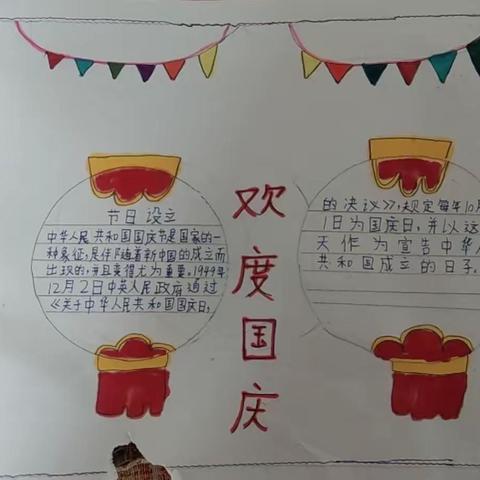 节日设立
中华人民共和国国庆节是国家的一
种象征,是伴随着新中国的成立而
出现的,并且变得尤为重要。1949年
12月2日中央人民政府通过
《关于中华人民共和国国庆日,
欢度国庆
的决议》,规定每年10月
1日为国庆日,并以这
天作为宣告中华人
共和国成立的日子。